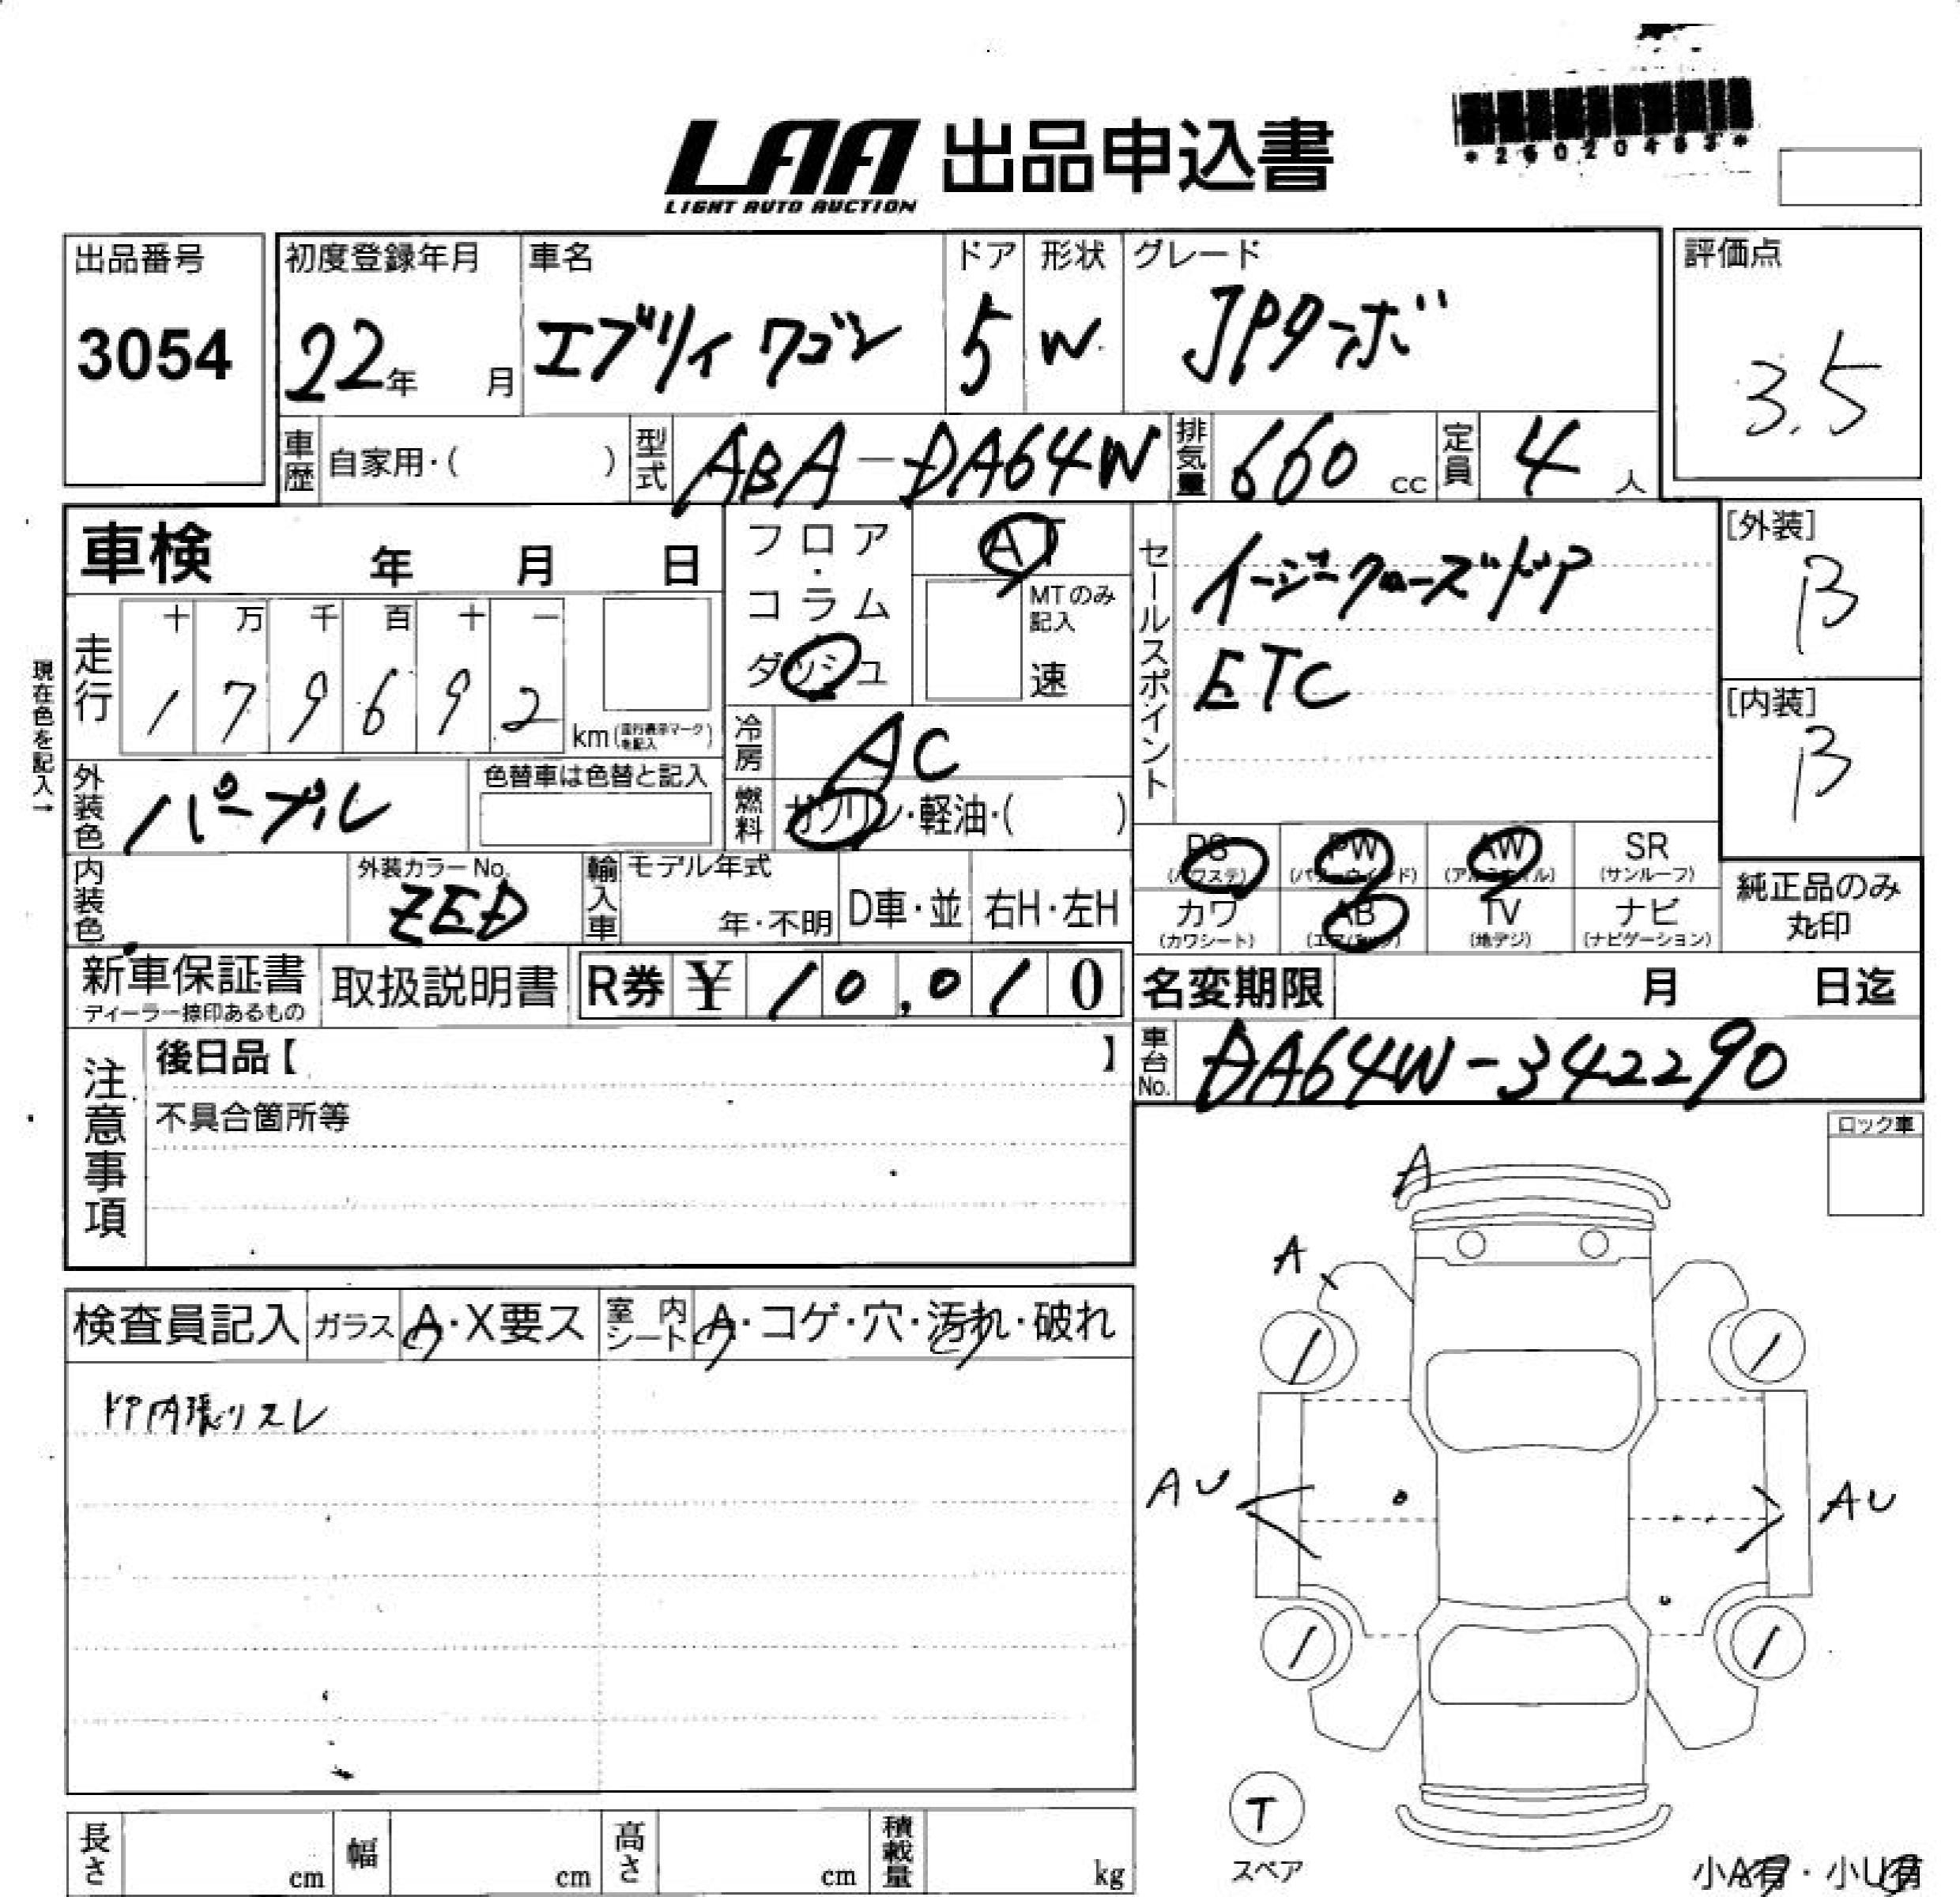 LAA 出品申込書
LIGHT AUTO AUCTION
出品番号
3054
初度登録年月
22年 月
車名
エブリイ ワゴン
ドア
5
形状
W
グレード
JPターボ
評価点
3.5
車歴 自家用・( )
型式 ABA-DA64W
排気量 660 cc
定員 4 人
車検 年 月 日
フロア・コラム
ダッシュ
AT
MTのみ記入
速
セールスポイント
イージークローズドドア
ETC
[外装]
B
[内装]
B
現在色を記入→
走行
十 万 千 百 十 一
1 7 9 6 9 2
km(走行表示マークを記入)
冷房 AC
燃料 ガソリン・軽油・( )
外装色 パープル
色替車は色替と記入
内装色
外装カラーNo.
ZED
輸入車
モデル年式
年・不明
D車・並
右H・左H
PS (パワステ)
PW (パワーウインドウ)
AW (アルミホイル)
SR (サンルーフ)
カワ (カワシート)
AB (エアバッグ)
TV (地デジ)
ナビ (ナビゲーション)
純正品のみ丸印
新車保証書
ディーラー捺印あるもの
取扱説明書
R券 ¥ 10,010
名変期限 月 日迄
車台No. DA64W-342290
注意事項
後日品【 】
不具合箇所等
ロック車
検査員記入
ガラス A・X要ス
室内シート A・コゲ・穴・汚れ・破れ
ドア内張リスレ
A
A
AU
AU
T
スペア
小A有・小U有
長さ cm
幅 cm
高さ cm
積載量 kg